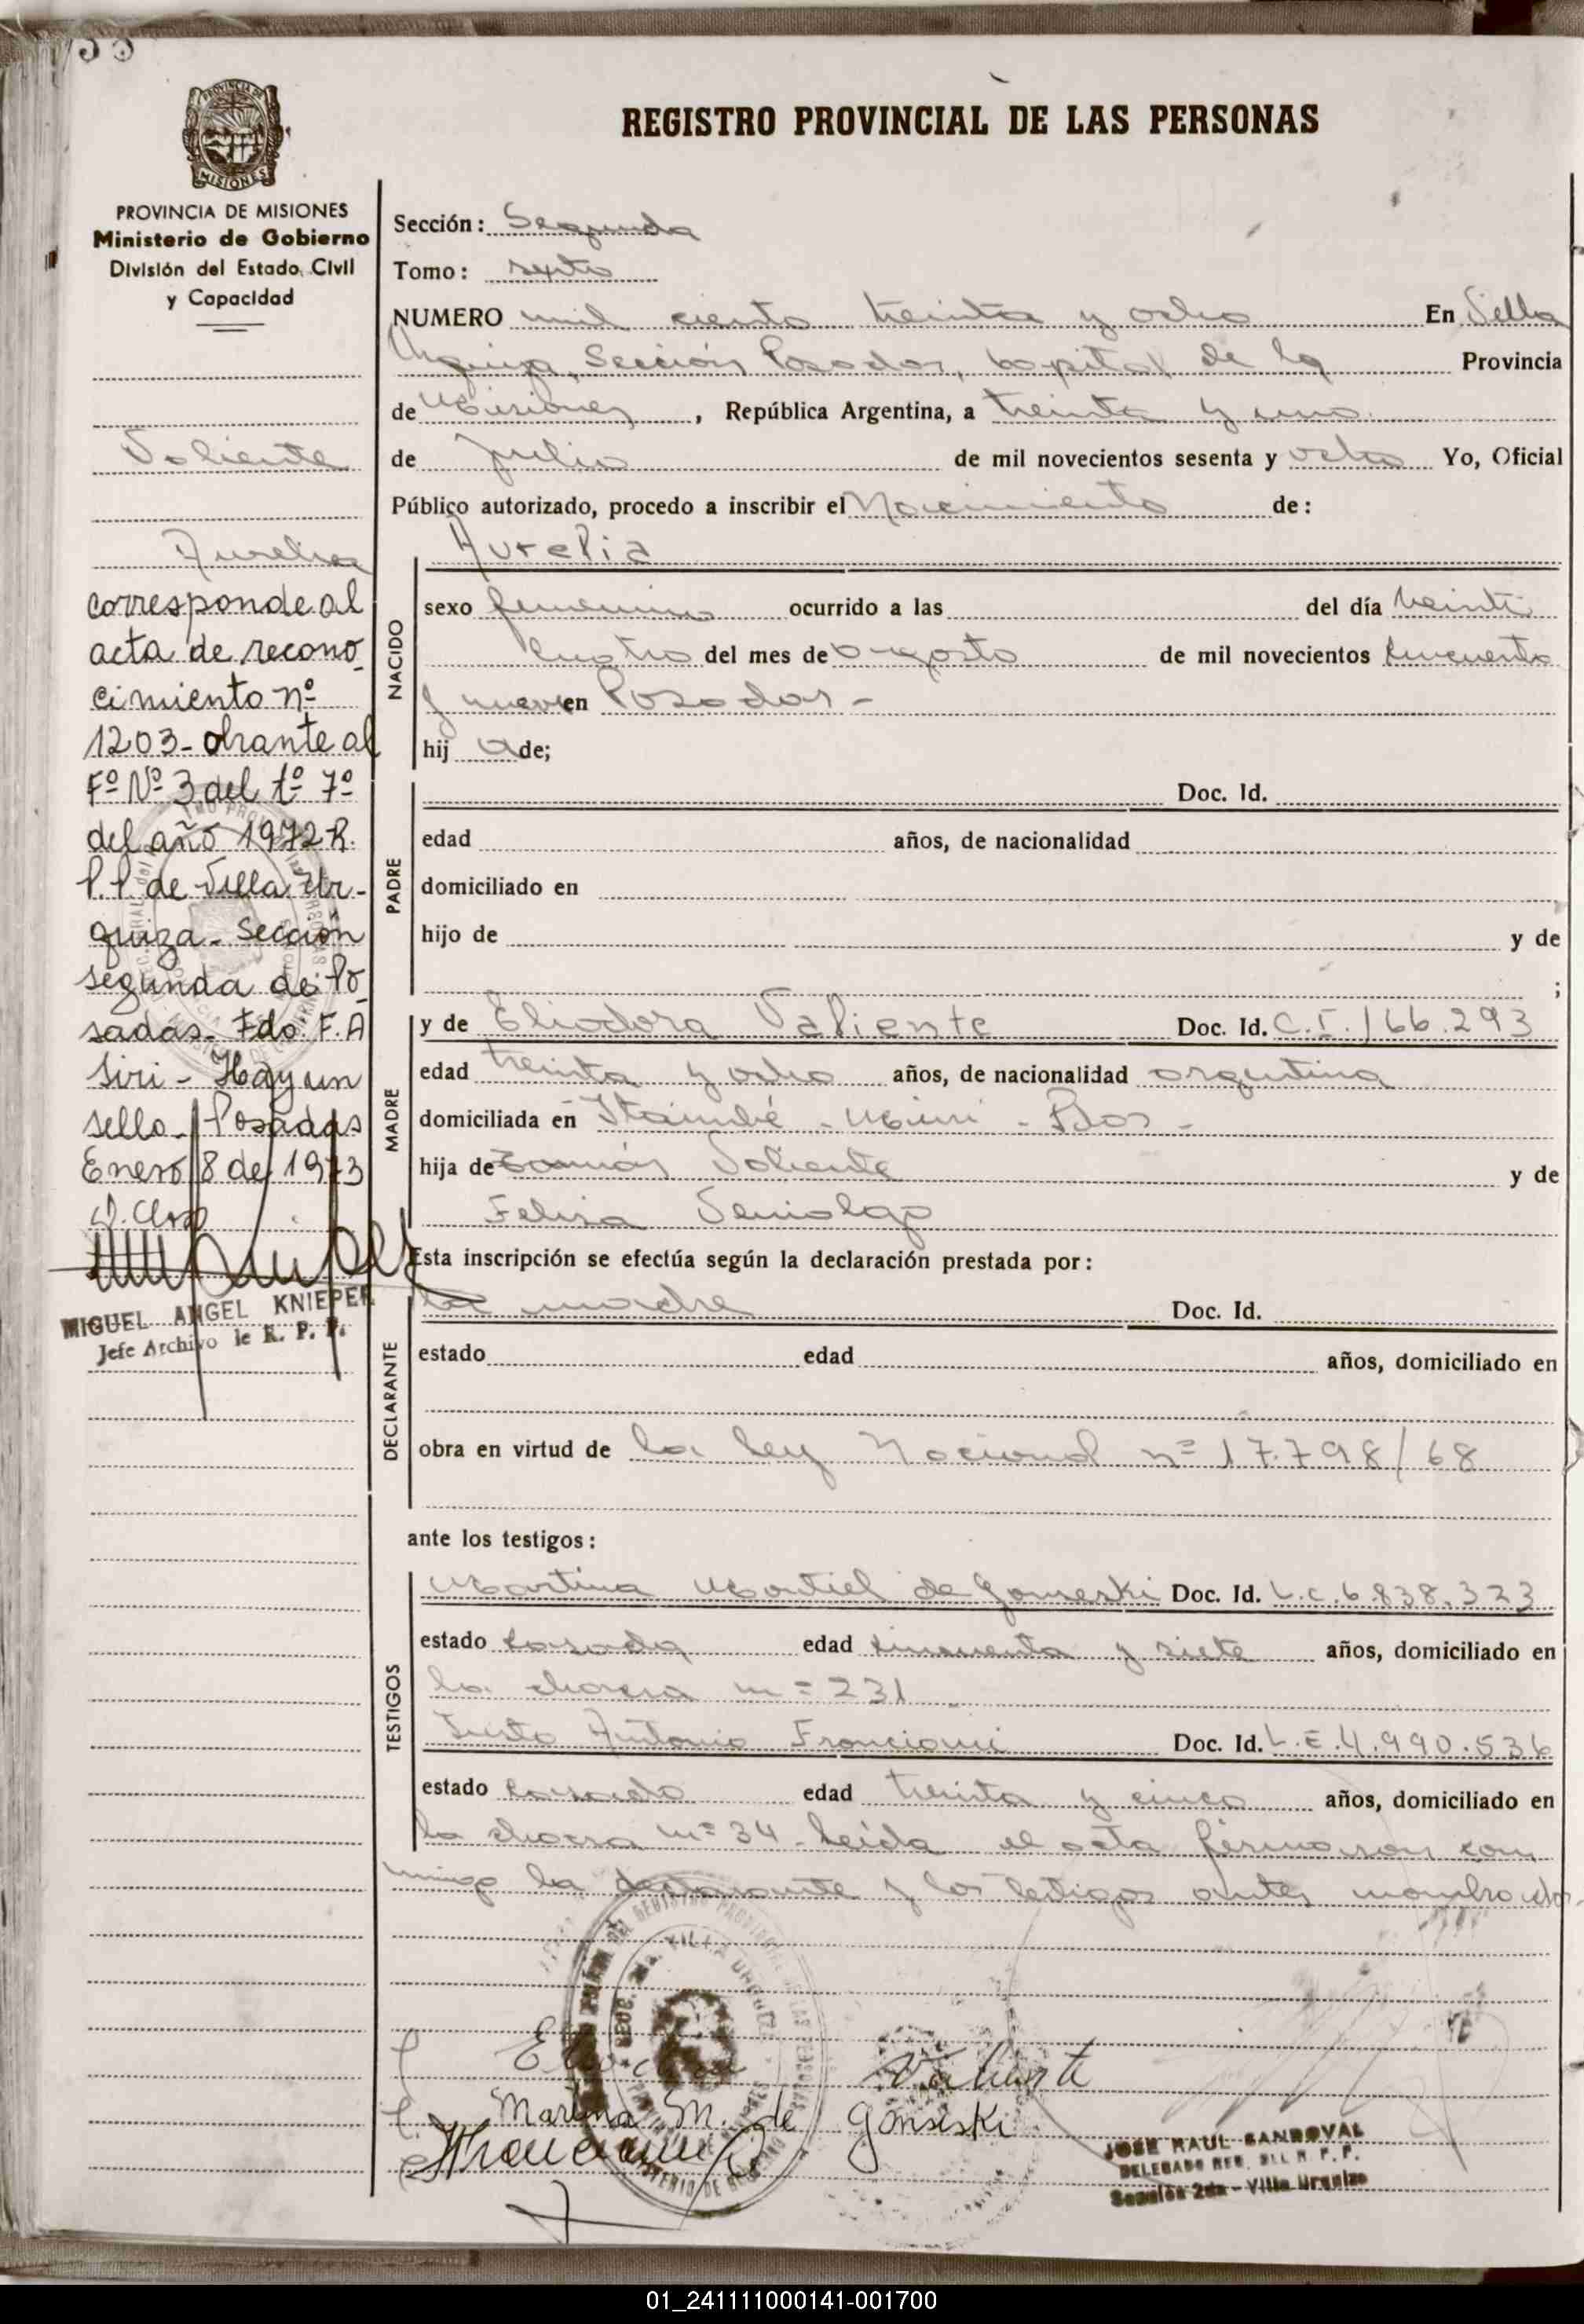 REGISTRO PROVINCIAL DE LAS PERSONAS
PROVINCIA DE
MISIONES
PROVINCIA DE MISIONES
Ministerio de Gobierno
División del Estado Civil
y Capacidad
Valiente
Aurelia
corresponde al
acta de recono
cimiento nº
1203- obrante al
Fº Nº 3 del tº 7º
del año 1972 R.
P.P. de Villa Ur-
quiza- Sección
segunda de Po
sadas- Fdo. F.A
Siri - Hay un
sello- Posadas
Enero 8 de 1973
MIGUEL ANGEL KNIEPER
Jefe Archivo de R. P. P.
Sección: Segunda
Tomo: sexto
NUMERO mil ciento treinta y ocho En Villa
Urquiza, Sección Posadas, Capital de la Provincia
de Misiones, República Argentina, a treinta y uno
de Julio de mil novecientos sesenta y ocho Yo, Oficial
Público autorizado, procedo a inscribir el Nacimiento de:
NACIDO
Aurelia
sexo femenino ocurrido a las del día veinti
cuatro del mes de agosto de mil novecientos cincuenta
y nueve en Posadas -
hij a de;
PADRE
Doc. Id.
edad años, de nacionalidad
domiciliado en
hijo de y de
;
MADRE
y de Eliodora Valiente Doc. Id. C.I. 166.293
edad treinta y ocho años, de nacionalidad argentina
domiciliada en Itaimbé - Mini - Pdas -
hija de Tomás Valiente y de
Felisa
Esta inscripción se efectúa según la declaración prestada por:
DECLARANTE
la madre Doc. Id.
estado edad años, domiciliado en
obra en virtud de la ley Nacional nº 17.798/68
ante los testigos:
TESTIGOS
Martina Montiel de Gomeski Doc. Id. L.C. 6.838.323
estado casada edad cincuenta y siete años, domiciliado en
la chacra nº 231
Justo Antonio Francioni Doc. Id. L.E. 4.990.536
estado casado edad treinta y cinco años, domiciliado en
la chacra nº 34 - Leída el acta firmaron con
migo la declarante y los testigos antes nombrados
Valiente
Martina M. de
JOSE RAUL SANDOVAL
Sección 2da - Villa Urquiza
01_241111000141-001700